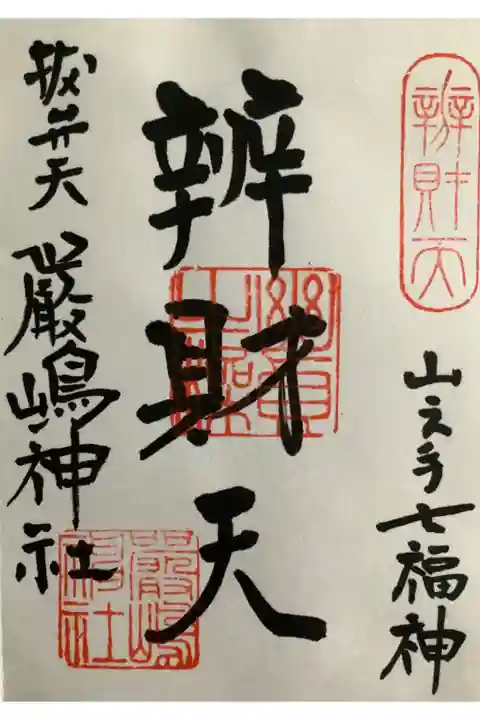 辨財天
山之手七福神
辨財天
抜弁天
厳嶋神社
厳嶋神社